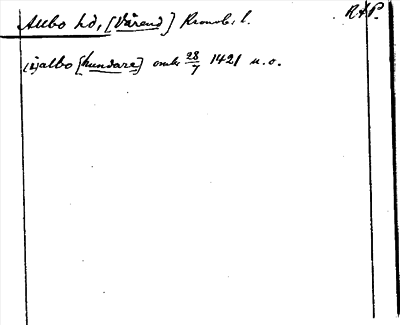 Allbo hd, [Värend] Kronob. l. RAP.
(i) albo [hundare] omkr 28/7 1421 u.o.